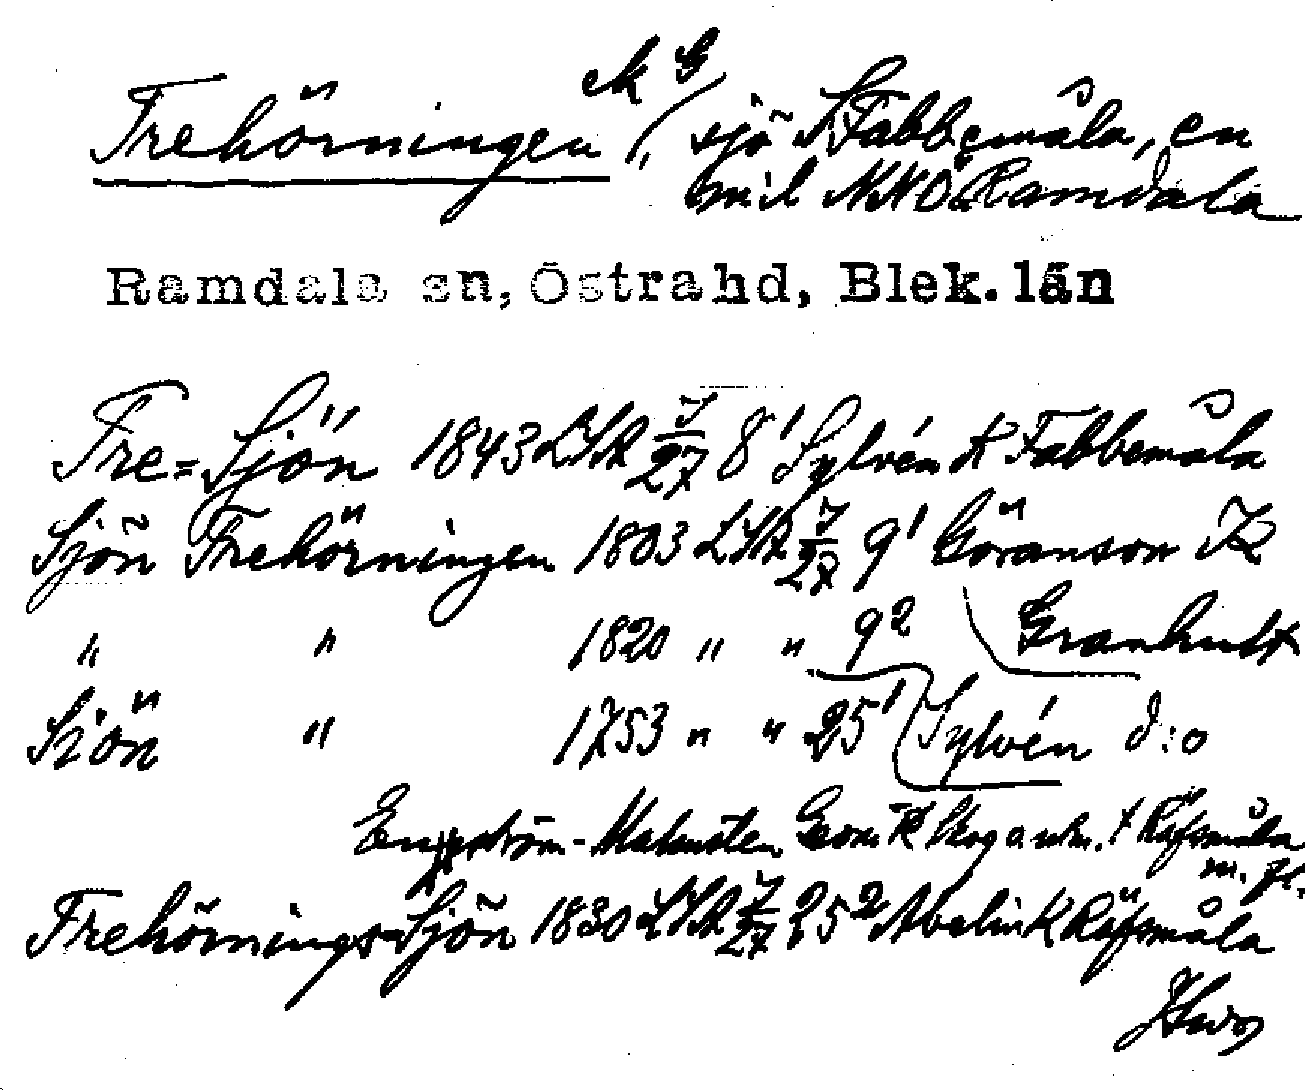 Trehörningen sjö S Fabbemåla, en
mil NNO Ramdala
Ramdala sn, Östra hd, Blek. län
Fre=Sjön 1843 LSA 7/27 8¹ Sylvén K Fabbemåla
Sjön Trehörningen 1803 LSA 7/27 9¹ Göranson K
" " 1820 " " 9² Granhult
Sjön " 1753 " " 25¹ Sylvén d:o
Geom K Räfsmåla
m. fl.
Trehörnings-Sjön 1830 LSA 7/27 25² Abelin K Räfsmåla